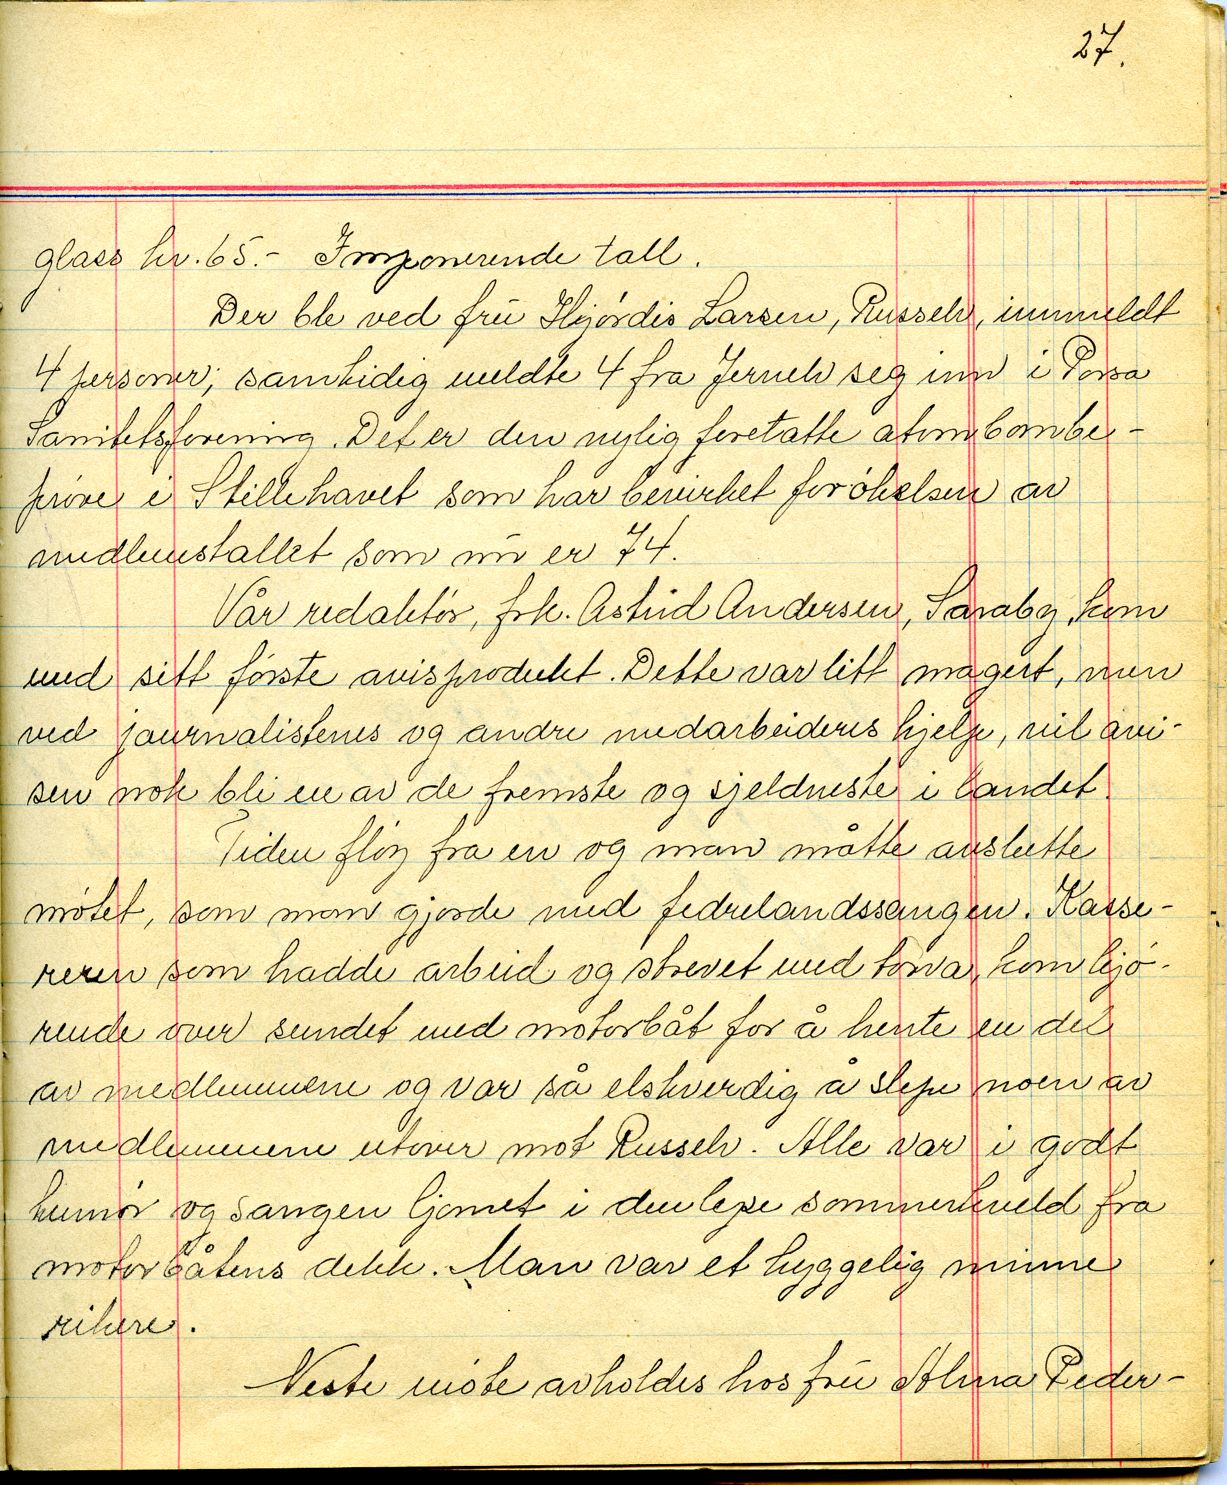 27.
glass kr. 65.- Imponerende tall.
Der ble ved frü Hjördis Larsen, Russelv, innmeldt
4 personer; samtidig meldte 4 fra Jernelv seg inn i Porsa
Sanitetsforening. Det er den nylig foretatte atombombe-
pröve i Stillehavet som har bevirket forökelsen av
medlemstallet som nü er 74.
Vår redaktör, frk. Astrid Andersen, Saraby, kom
med sitt förste avisprodukt. Dette var litt magert, men
ved journalistenes og andre medarbeideres hjelp, vil avi-
sen nok bli en av de fremste og sjeldneste i landet.
Tiden flöy fra en og man måtte avslutte
mötet, som man gjorde med fedrelandssangen. Kasse-
reren som hadde arbeid og strevet med torva, kom kjö-
rende over sundet med motorbåt for å hente en del
av medlemmene og var så elskverdig å slepe noen av
medlemmene utover mot Russelv. Alle var i godt
humör og sangen ljomet i den lyse sommerkveld fra
motorbåtens dekk. Man var et hyggelig minne
rikere.
Neste möte avholdes hos frü Alma Peder-